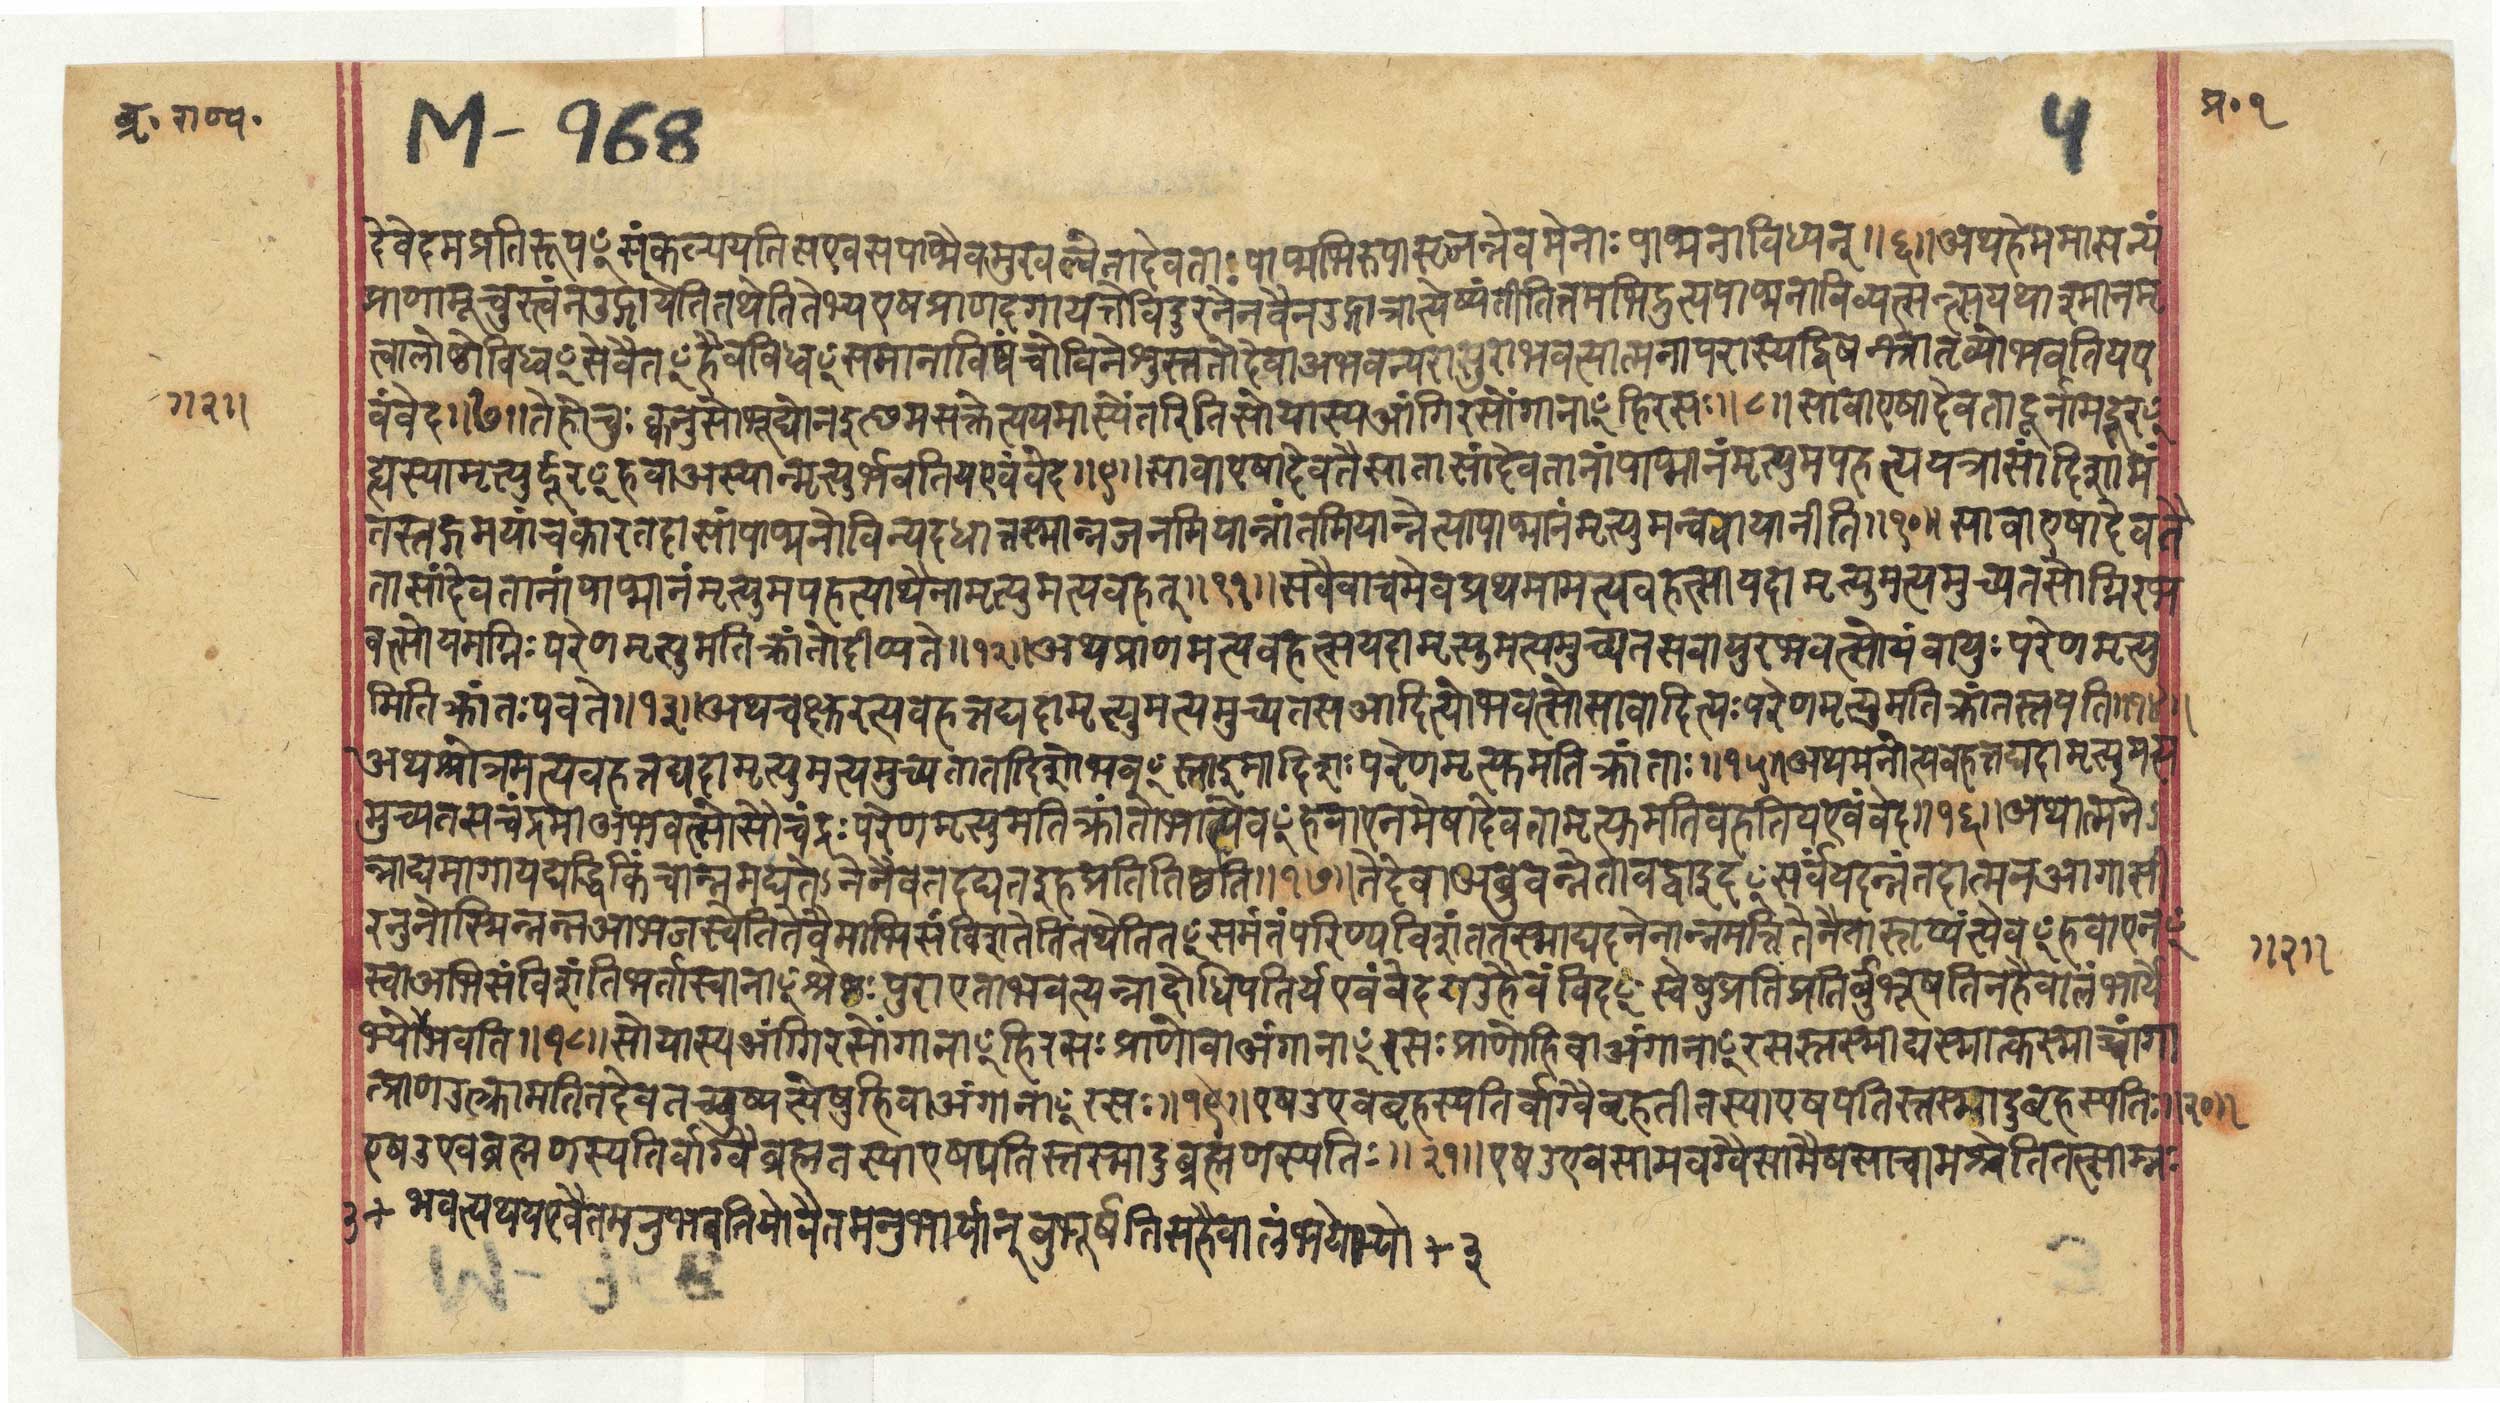 बृ॰ राण्य॰
M-968
५
प्र॰ १
देवेदमप्रतिरूपꣳसंकल्पयतिसएवसपाप्मैवमुखल्वेतादेवताःपाप्मभिरुपासृजन्नेवमेनाःपाप्मनाविध्यन्॥६॥अथहेममासन्यं
प्राणामूचुस्त्वंनउद्गायेतितथेतितेभ्यएषप्राणदगायत्तेविदुरनेनवैनउद्गात्रात्येष्यंतीतितमभिद्रुत्यपाप्मनाविव्यत्सन्त्सयथाश्मानमृ
त्वालोष्ठोविध्वꣳसेतैवꣳहैवविध्वꣳसमानाविष्वंचोविनेशुस्ततोदेवाअभवन्परासुराभवत्यात्मनापरास्यद्विषन्भ्रातृव्योभवतियए
वंवेद॥७॥तेहोचुःक्वनुसोभूद्योनइत्थमसक्तेत्ययमास्येंतरितिसोयास्यआंगिरसोंगानाꣳहिरसः॥८॥सावाएषादेवतादूर्नामदूरꣳ
ह्यस्यामृत्युर्दूरꣳहवाअस्यान्मृत्युर्भवतियएवंवेद॥९॥सावाएषादेवतैसातासांदेवतानांपाप्मानंमृत्युमपहत्ययत्रासांदिशामं
तस्तद्गमयांचकारतदासांपाप्मनोविन्यदधात्तस्मान्नजनमियान्नांतमियान्नेत्यापाप्मानंमृत्युमन्ववायानीति॥१०॥सावाएषादेवतै
तासांदेवतानांपाप्मानंमृत्युमपहत्याथैनामृत्युमत्यवहत्॥११॥सवैवाचमेवप्रथमामत्यवहत्सायदामृत्युमत्यमुच्यतसोग्निरभ
वत्सोयमग्निःपरेणमृत्युमतिक्रांतोदीप्यते॥१२॥अथप्राणमत्यवहत्सयदामृत्युमत्यमुच्यतसवायुरभवत्सोयंवायुःपरेणमृत्यु
मितिक्रांतःपवते॥१३॥अथचक्षुरत्यवहत्तद्यदामृत्युमत्यमुच्यतसआदित्योभवत्सोसावादित्यःपरेणमृत्युमतिक्रांतस्तपति॥१४॥
अथश्रोत्रमत्यवहत्तद्यदामृत्युमत्यमुच्यतातादिशोभवꣳस्ताइमादिशःपरेणमृत्युमतिक्रांताः॥१५॥अथमनोत्यवहत्तद्यदामृत्युमत्य
मुच्यतसचंद्रमाअभवत्सोसौचंद्रःपरेणमृत्युमतिक्रांतोभात्येवꣳहवाएनमेषादेवतामृत्युमतिवहतियएवंवेद॥१६॥अथात्मनेऽ
न्नाद्यमागायद्यद्धिकिंचान्नमद्यतेऽनेनैवतदद्यतइहप्रतितिष्ठति॥१७॥तेदेवाअब्रुवन्नेतावद्वाइदꣳसर्वंयदन्नंतदात्मनआगासी
रनुनोस्मिन्नन्नआभजस्वेतितेवैमाभिसंविशतेतितथेतितꣳसमंतंपरिण्यविशंततस्माद्यदनेनान्नमत्तितेनैतास्तृप्यंत्येवꣳहवाएनꣳ
स्वाअभिसंविशंतिभर्तास्वानाꣳश्रेष्ठःपुराएताभवत्यन्नादोधिपतिर्यएवंवेदयउहैवंविदꣳस्वेषुप्रतिप्रतिर्बुभूषतिनहैवालंभार्ये
भ्योभवति॥१८॥सोयास्यआंगिरसोंगानाꣳहिरसःप्राणोवाअंगानाꣳरसःप्राणोहिवाअंगानाꣳरसस्तस्माद्यस्मात्कस्माच्चांगा
त्प्राणउत्क्रामतितदेवतच्छुष्यत्येषहिवाअंगानाꣳरसः॥१९॥एषउएवबृहस्पतिर्वाग्वैबृहतीतस्याएषपतिस्तस्मादुबृहस्पतिः॥२०॥
एषउएवब्रह्मणस्पतिर्वाग्वैब्रह्मतस्याएषपतिस्तस्मादुब्रह्मणस्पतिः॥२१॥एषउएवसामवाग्वैसामैषसाचामश्चेतितत्साम्नः
३+ भवत्यथयएवैतमनुभवतियोवैतमनुभार्यान्बुभूर्षतिसहैवालंभार्येभ्यो + ३
॥२॥
॥२॥